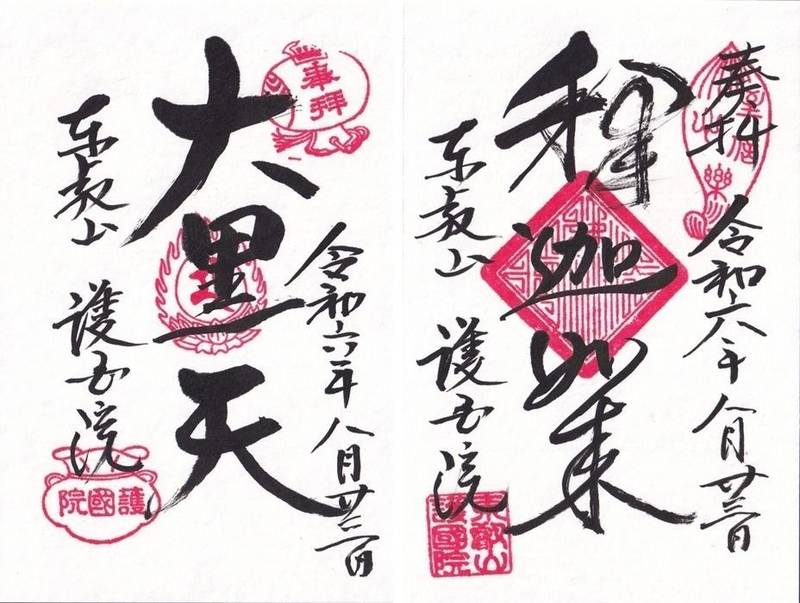 奉拝
令和六年八月廿三日
釈迦如来
東叡山 護国院
東叡山
護國院
奉拝
令和六年八月廿三日
大黒天
東叡山 護国院
護國院